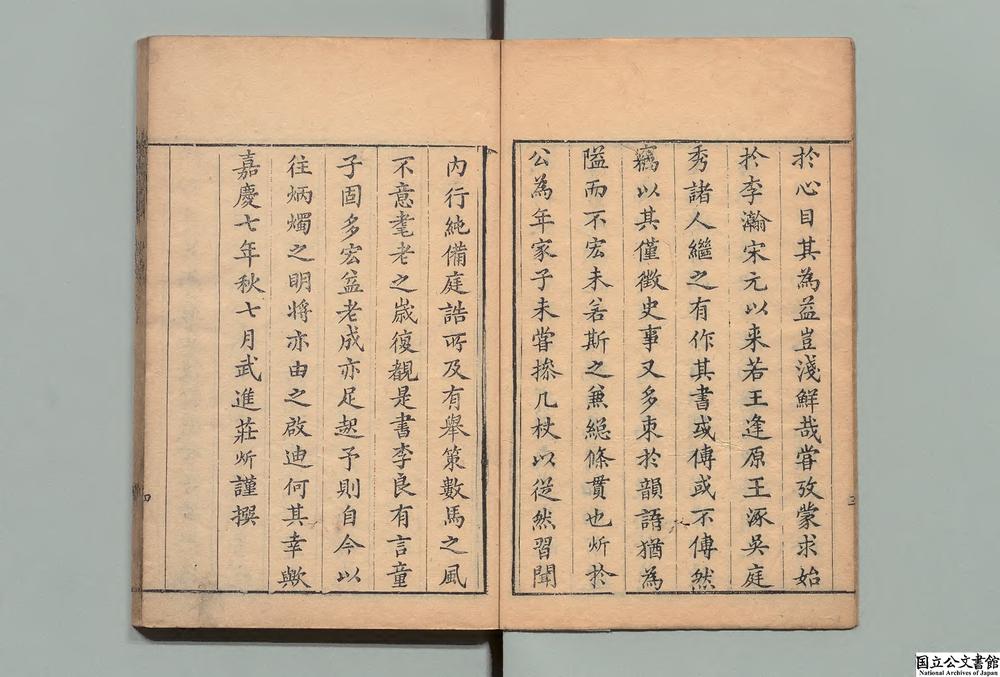 於心目其為益豈淺鮮哉嘗攷蒙求始
於李瀚宋元以来若王逢原王涿吳庭
秀諸人繼之有作其書或傳或不傳然
竊以其僅徵史事又多束於韻語猶為
隘而不宏未若斯之兼綜條貫也炘於
公為年家子未嘗捺几杖以從然習聞
三
内行純備庭誥所及有舉策數馬之風
不意耄老之歲復覩是書李良有言童
子固多宏益老成亦足起予則自今以
往炳燭之明將亦由之啟迪何其幸歟
嘉慶七年秋七月武進莊炘謹撰
四
国立公文書館
National Archives of Japan